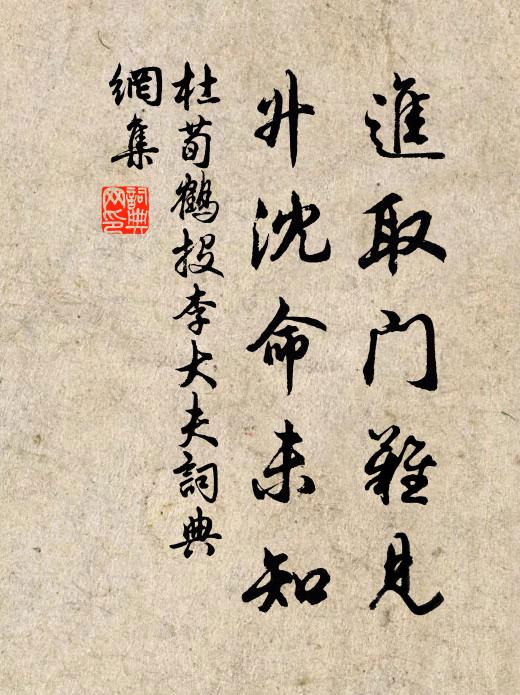 進取門難見
升沈命未知
杜荀鶴投李大夫詞典
網集
詞典網印